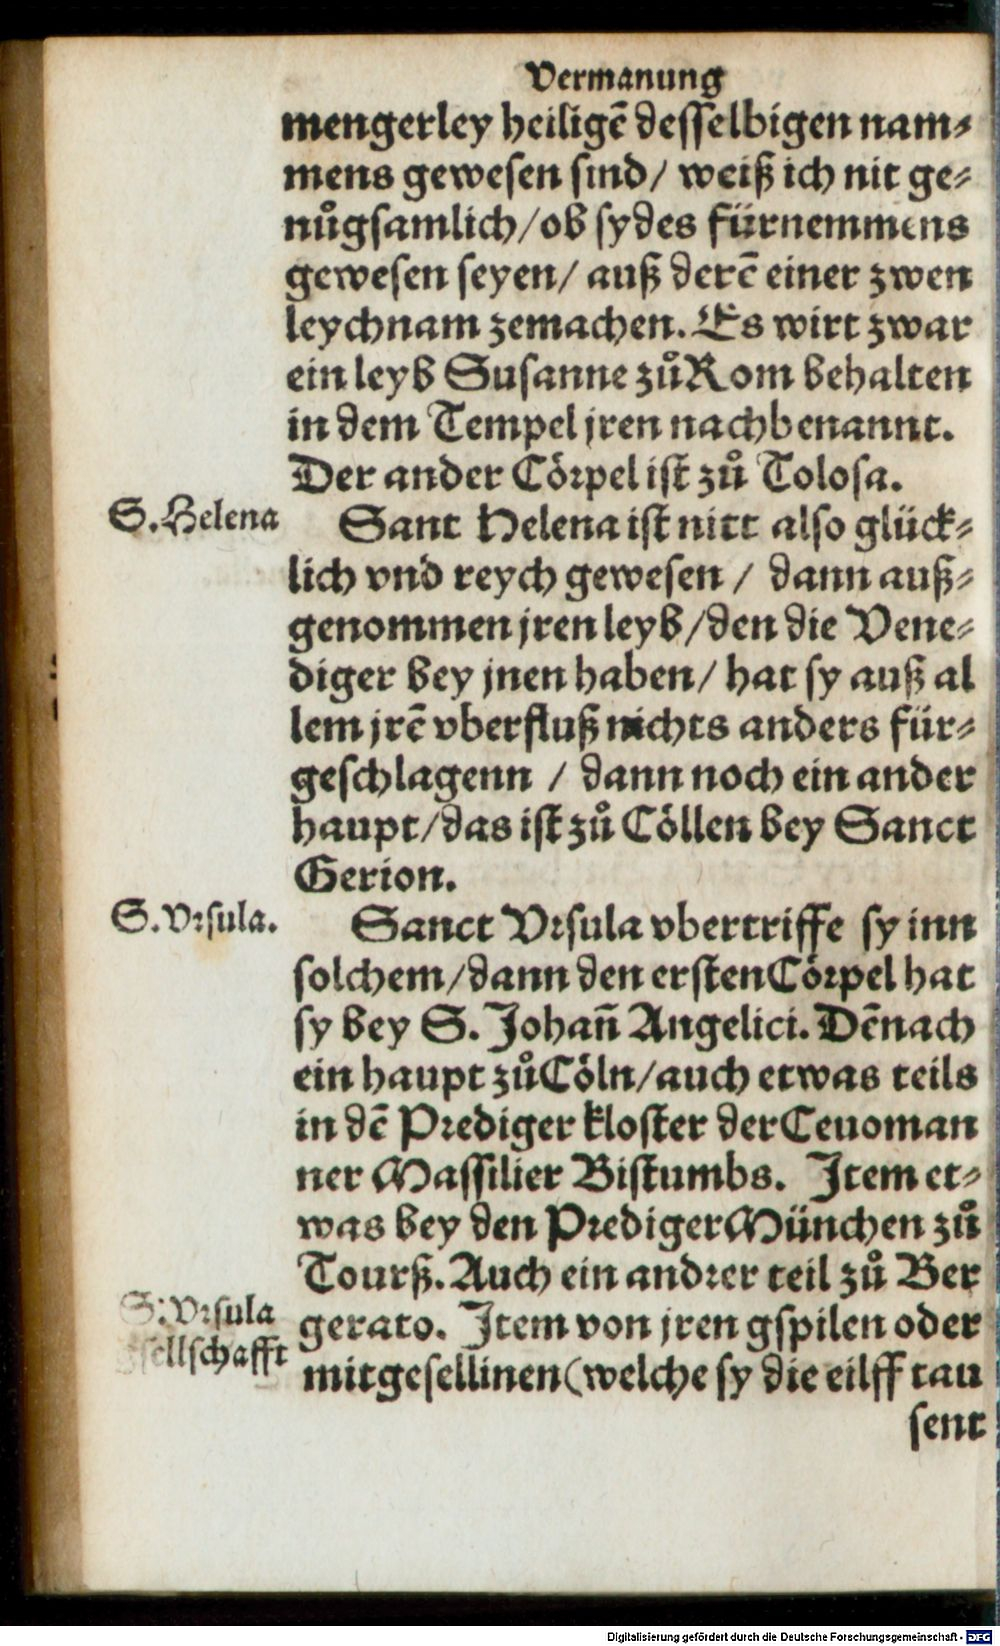 Vermanung
mengerley heiligē desselbigen nam⸗
mens gewesen sind/ weiß ich nit ge⸗
nůgsamlich/ob sy des fürnemmens
gewesen seyen/ auß derē einer zwen
leychnam zemachen. Es wirt zwar
ein leyb Susanne zů Rom behalten
in dem Tempel jren nach benannt.
Der ander Cörpel ist zů Tolosa.
S. Helena
Sant Helena ist nitt also glück⸗
lich vnd reych gewesen / dann auß⸗
genommen jren leyb/den die Vene⸗
diger bey jnen haben/ hat sy auß al
lem jrē vberfluß nichts anders für⸗
geschlagenn / dann noch ein ander
haupt/das ist zů Cöllen bey Sanct
Gerion.
S. Vrsula.
Sanct Vrsula vbertriffe sy inn
solchem/dann den ersten Cörpel hat
sy bey S. Johan̄ Angelici. Dēnach
ein haupt zů Cöln/auch etwas teils
in dē Prediger kloster der Cenoman
ner Massilier Bistumbs. Item et⸗
was bey den Prediger München zů
Tourß. Auch ein andrer teil zů Ber
S. Vrsula
gsellschafft
gerato. Item von jren gspilen oder
mitgesellinen (welche sy die eilff tau
sent
Digitalisierung gefördert durch die Deutsche Forschungsgemeinschaft - DFG